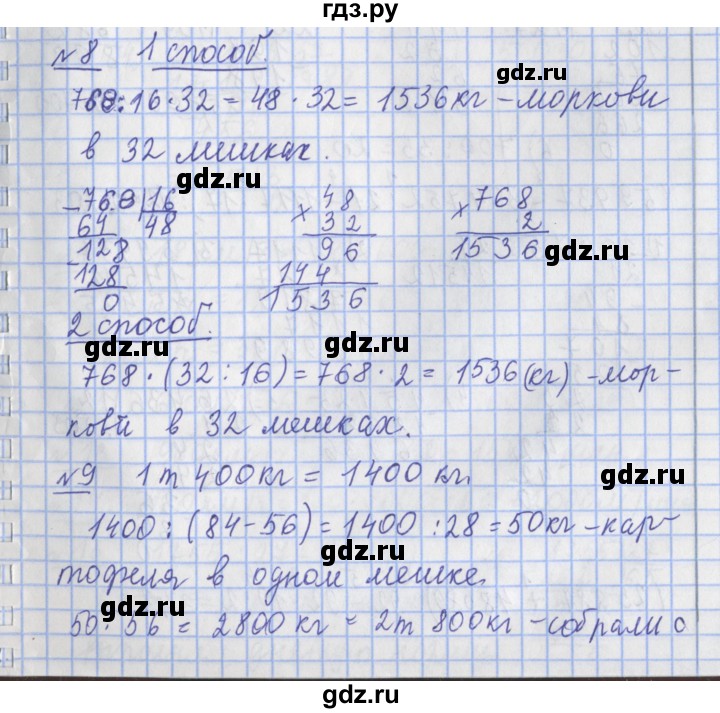 гдз.ру
№8 1 способ.
gdz.ru
768:16·32 = 48·32 = 1536 кг - моркови
в 32 мешках.
gdz.ru
- 768 | 16 × 48 × 768
64 48 32 2
- 128 96 1536
gdz.ru
128 144
0 1536
2 способ.
gdz.ru gdz.ru
768·(32:16) = 768·2 = 1536 (кг) - мор-
кови в 32 мешках.
№9 1 т 400 кг = 1400 кг.
gdz.ru
1400:(84-56) = 1400:28 = 50 кг - кар-
gdz.ru
тофеля в одном мешке.
gdz.ru
50·56 = 2800 кг = 2 т 800 кг - собрали с
gdz.ru
gdz.ru